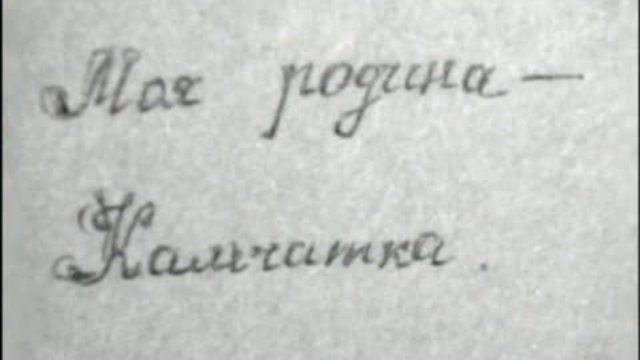 Моя родина —
Камчатка.